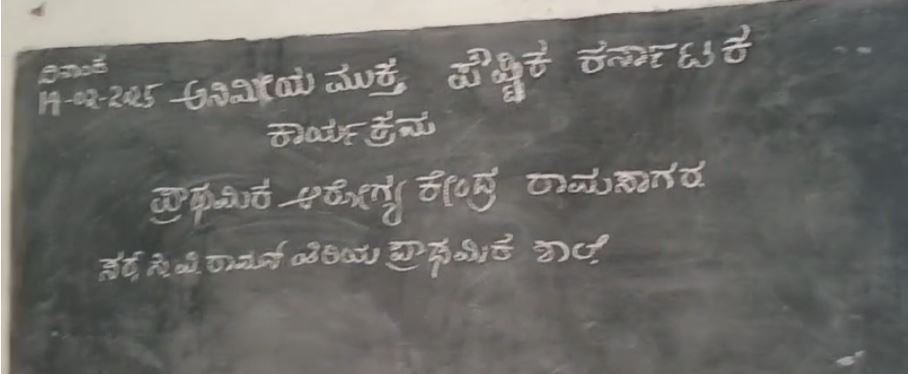 ದಿನಾಂಕ
19-02-2025 ಅನಿಮೀಯ ಮುಕ್ತ ಪೌಷ್ಟಿಕ ಕರ್ನಾಟಕ
ಕಾರ್ಯಕ್ರಮ
ಪ್ರಾಥಮಿಕ ಆರೋಗ್ಯ ಕೇಂದ್ರ ರಾಮಸಾಗರ
ಸರ್ ಸಿ.ವಿ. ರಾಮನ್ ಹಿರಿಯ ಪ್ರಾಥಮಿಕ ಶಾಲೆ